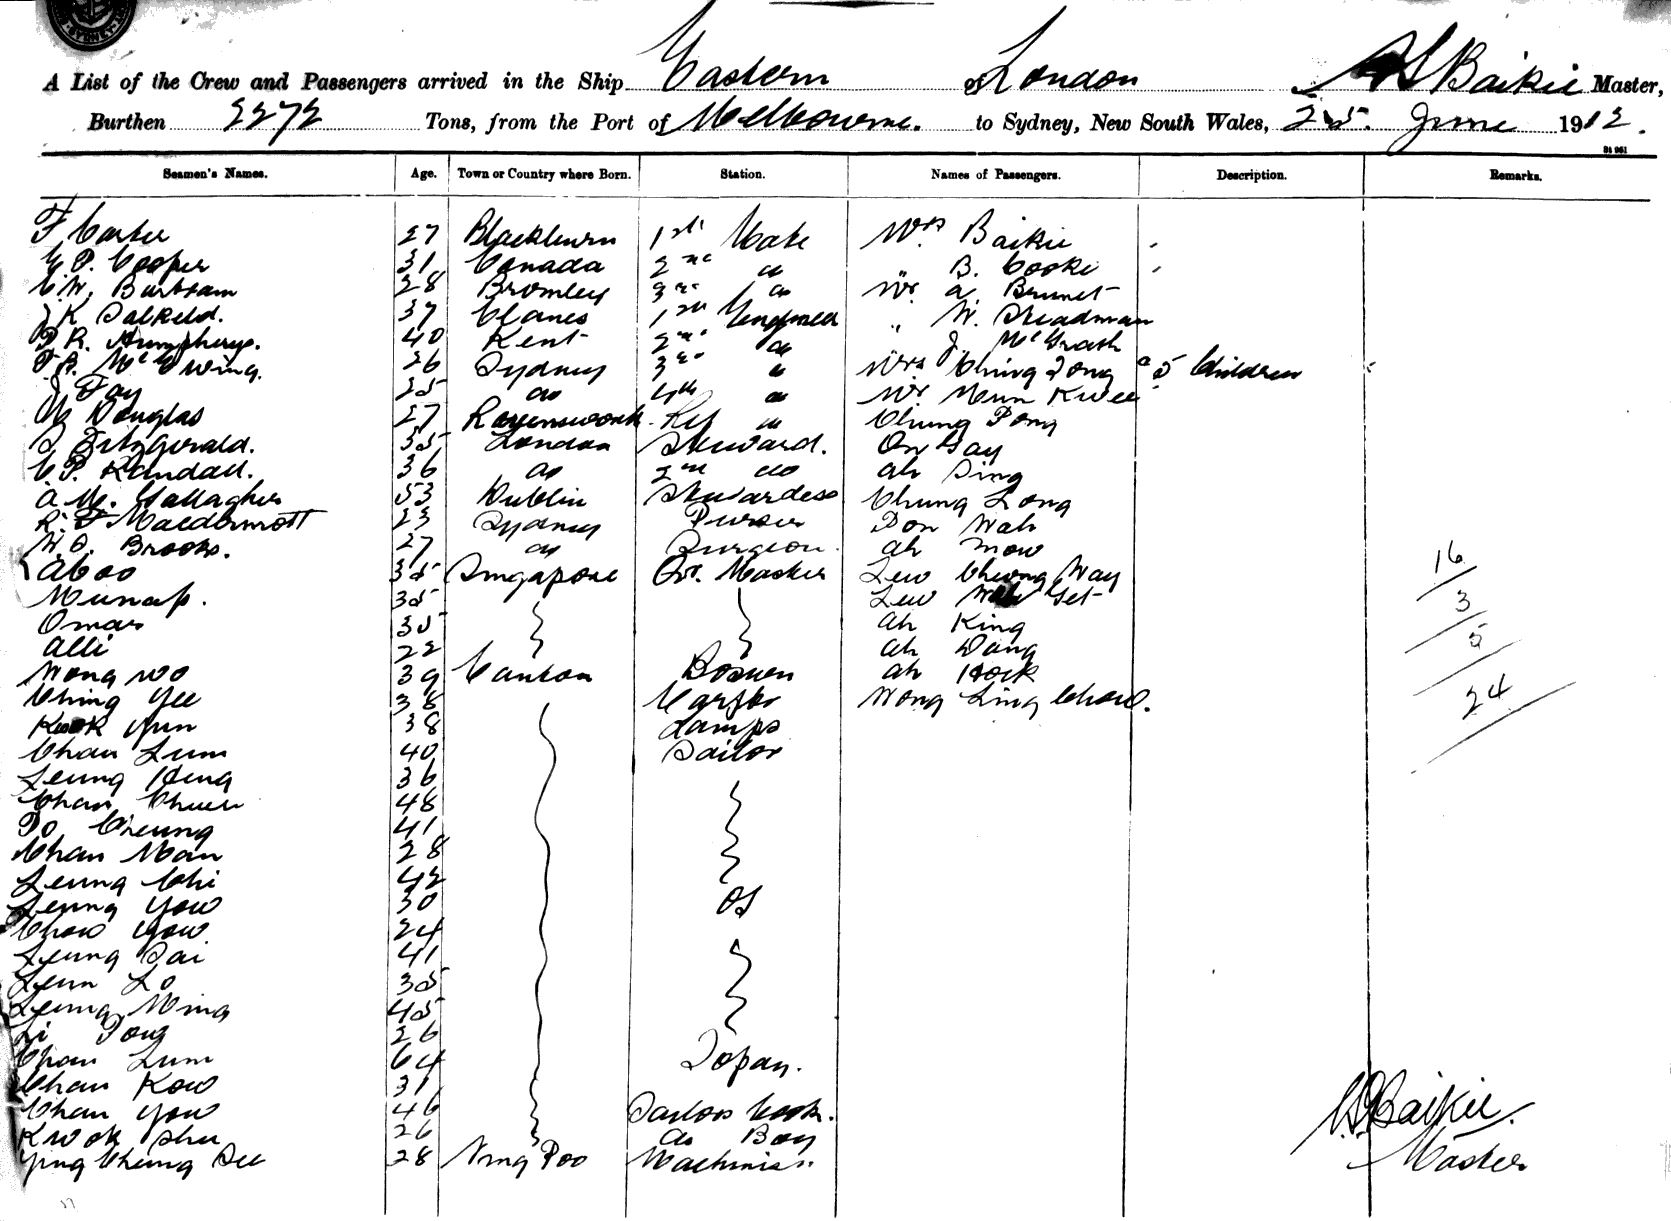 SYDNEY
A List of the Crew and Passengers arrived in the Ship Eastern of London Baikie Master,
Burthen 2272 Tons, from the Port of Melbourne. to Sydney, New South Wales, 25. June 1912.
Seamen's Names. Age. Town or Country where Born. Station. Names of Passengers. Description. Remarks.
F 27 Blackburn 1st Mate Mrs Baikie
P. Cooper 31 Canada 2nd do B. Cooke
W. Bertram 28 Bromley 3rd do Mr A. Brunet
K Salkeld. 37 1st Engineer " W. Steadman
R. Humphreys. 40 Kent 2nd do J. McGrath
McEwing. 26 Sydney 3rd do Mrs Ching Tong & 5 Children
J Fay 25 do 4th do Mr Mun Kwee
Douglas 27 Ravenswood do Chung Pong
Fitzgerald. 35 London Steward. On Gay
C.P. Randall. 36 do 2nd do Ah Sing
A. M. Gallagher 53 Dublin Stewardess Chung Long
R. F Macdermott 23 Sydney Purser Don Wah
W. O. Brooks. 27 do Surgeon. Ah Mow
Aboo 35 Singapore Qr. Master Lew Cheong Way 16
Munap. 35 Lew Get 3
Omar 35 Ah King 5
Alli 22 Ah Dang
Wong Woo 39 Canton Bosun Ah Hock 24
Ching Yee 38 Carptr Wong Ling Chow.
Kwok Yun 38 Lamps
Chan Lum 40 Sailor
Leung Heng 36
Chan Chuen 48
Po Cheung 41
Chan Man 28
Leung Chi 42
Leung Yow 30 OS
Chow Yow 24
Leung Sai 41
Leun Lo 35
Leung Ming 45
Li Pong 26
Chan Lum 64 Topan.
Chan Kow 31
Chan Yow 46 Sailors Cook.
Kwok Shu 26 do Boy
Ying Cheung See 28 Ning Poo Machinist
Baikie.
Master